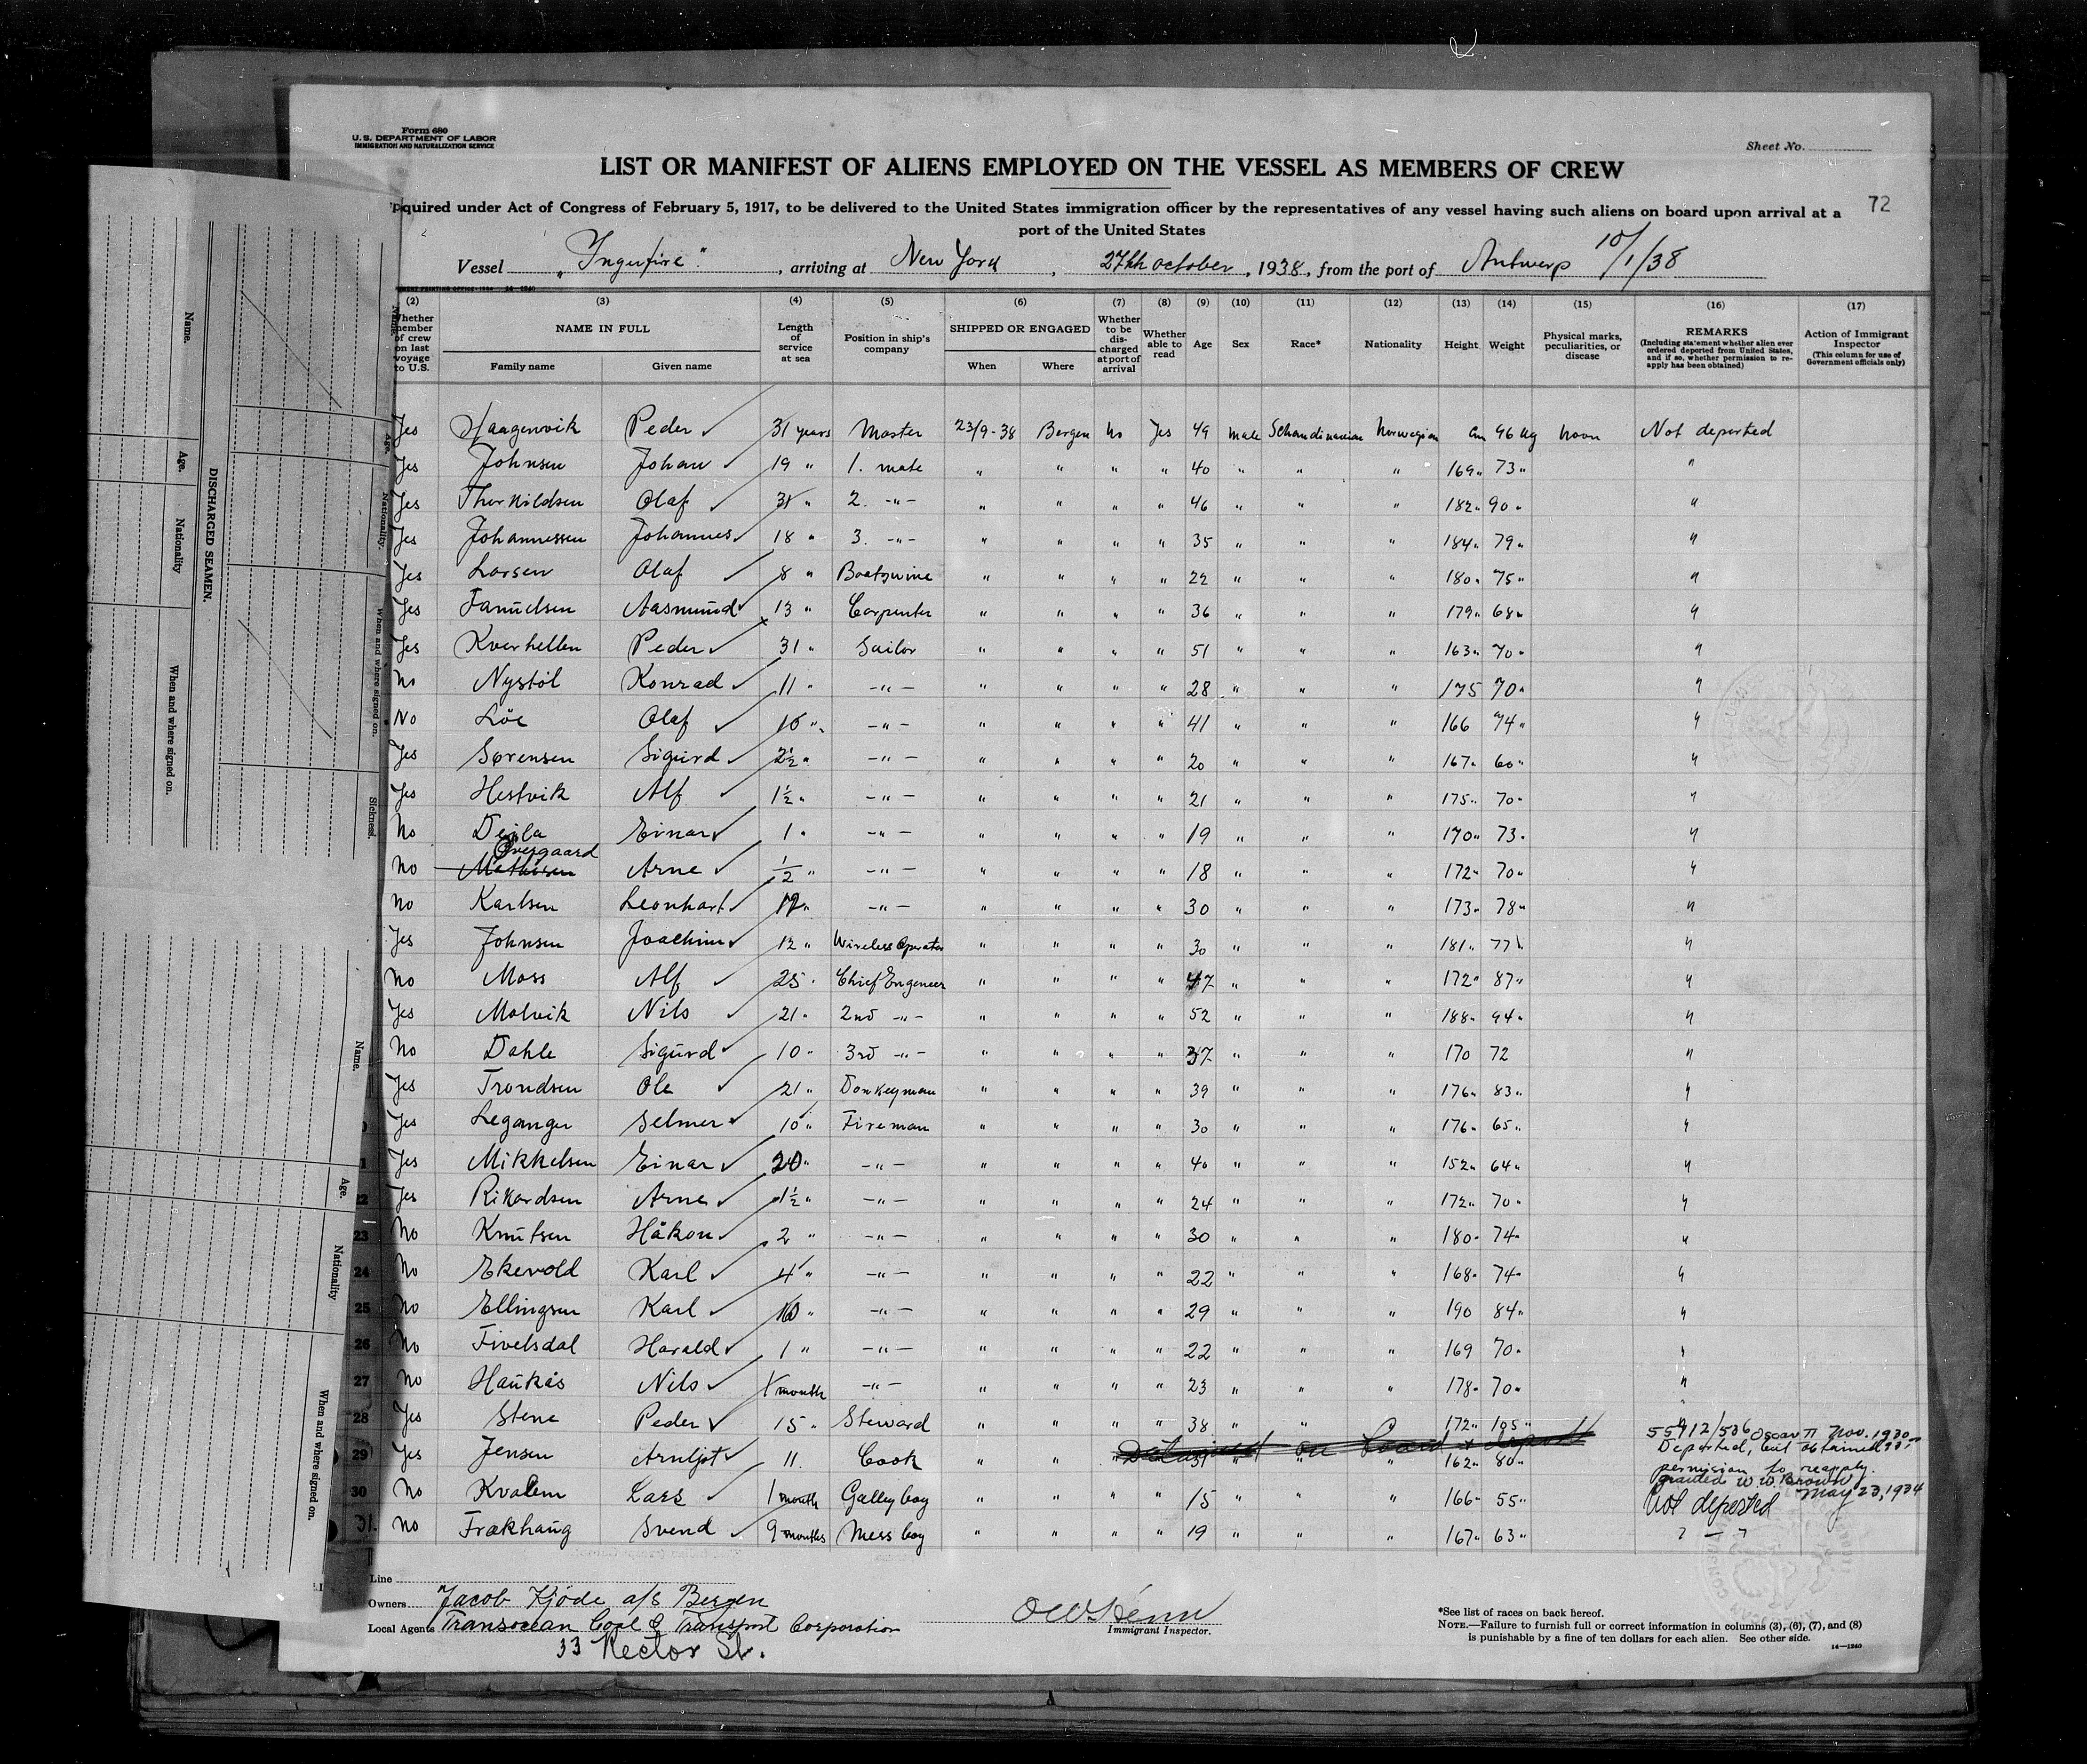 Form 680
U.S. DEPARTMENT OF LABOR
IMMIGRATION AND NATURALIZATION SERVICE
Sheet No.
LIST OR MANIFEST OF ALIENS EMPLOYED ON THE VESSEL AS MEMBERS OF CREW
quired under Act of Congress of February 5, 1917, to be delivered to the United States immigration officer by the representatives of any vessel having such aliens on board upon arrival at a
72
port of the United States
Vessel „Ingerfire", arriving at New York, 27th october, 1938, from the port of Antwerp 10/1/38
(2) (3) (4) (5) (6) (7) (8) (9) (10) (11) (12) (13) (14) (15) (16) (17)
Whether member of crew on last voyage to U.S. NAME IN FULL Family name Given name Length of service at sea Position in ship's company SHIPPED OR ENGAGED When Where Whether to be discharged at port of arrival Whether able to read Age Sex Race* Nationality Height Weight Physical marks, peculiarities, or disease REMARKS (Including statement whether alien ever ordered deported from United States, and if so, whether permission to reapply has been obtained) Action of Immigrant Inspector (This column for use of Government officials only)
Yes Haagenvik Peder 31 years Master 23/9-38 Bergen No Yes 49 male Schandinavian Norwegian cm 96 kg noon Not deported
Yes Johnsen Johan 19 " 1. mate " " " " 40 " " " 169 " 73 " "
Yes Thorkildsen Olaf 31 " 2. -"- " " " " 46 " " " 182 " 90 " "
Yes Johannessen Johannes 18 " 3. -"- " " " " 35 " " " 184 " 79 " "
Yes Larsen Olaf 8 " Boatswine " " " " 22 " " " 180 " 75 " "
Yes Samuelsen Aasmund 13 " Carpenter " " " " 36 " " " 179 " 68 " "
Yes Kverhellen Peder 31 " Sailor " " " " 51 " " " 163 " 70 " "
No Nystöl Konrad 11 " -"- " " " " 28 " " " 175 70 " "
No Löe Olaf 16 " -"- " " " " 41 " " " 166 74 " "
Yes Sørensen Sigurd 2½ " -"- " " " " 20 " " " 167 " 60 " "
Yes Hestvik Alf 1½ " -"- " " " " 21 " " " 175 " 70 " "
No Dejla Einar 1 " -"- " " " " 19 " " " 170 " 73 " "
Overgaard
No Mathisen Arne ½ " -"- " " " " 18 " " " 172 " 70 " "
No Karlsen Leonhart 12 " -"- " " " " 30 " " " 173 " 78 " "
Yes Johnsen Joachim 12 " Wireless Operator " " " " 30 " " " 181 " 77 " "
No Moss Alf 25 " Chief Engeneer " " " " 47 " " " 172 " 87 " "
Yes Molvik Nils 21 " 2nd -"- " " " " 52 " " " 188 " 94 " "
No Dahle Sigurd 10 " 3rd -"- " " " " 37 " " " 170 72 "
Yes Trondsen Ole 21 " Donkeyman " " " " 39 " " " 176 " 83 " "
Yes Leganger Selmer 10 " Fireman " " " " 30 " " " 176 " 65 " "
Yes Mikkelsen Einar 20 " -"- " " " " 40 " " " 152 " 64 " "
Yes Rikardsen Arne 1½ " -"- " " " " 24 " " " 172 " 70 " "
23 No Knutsen Håkon 2 " -"- " " " " 30 " " " 180 " 74 " "
24 No Ekevold Karl 4 " -"- " " " " 22 " " " 168 " 74 " "
25 No Ellingsen Karl 10 " -"- " " " " 29 " " " 190 84 " "
26 No Fivelsdal Harald 1 " -"- " " " " 22 " " " 169 70 " "
27 No Haukås Nils 1 month -"- " " " " 23 " " " 178 " 70 " "
28 Yes Stene Peder 15 " Steward " " " " 38 " " " 172 " 105 " "
55912/506 Oscar II Nov. 1930
29 Yes Jensen Arnljot 11 " Cook " " " " 31 " " " 162 " 80 " Deported, but obtained
Detained on board & deported
permission to reapply
granted W. W. Brown
May 23, 1934
30 No Kvalem Lars 1 month Galley boy " " " " 15 " " " 166 " 55 " Not deported
31. No Frækhaug Svend 9 months Mess boy " " " " 19 " " " 167 " 63 " " — "
Line
Owners Jacob Kjöde a/s Bergen
Local Agents Transocean Coal & Transport Corporation
33 Rector St.
Immigrant Inspector.
*See list of races on back hereof.
NOTE.—Failure to furnish full or correct information in columns (3), (6), (7), and (8)
is punishable by a fine of ten dollars for each alien. See other side.
14—1240
DISCHARGED SEAMEN.
Name.
Age.
Nationality
When and where signed on.
Age.
Nationality.
When and where signed on.
Sickness.
Name.
Age.
Nationality
When and where signed on.